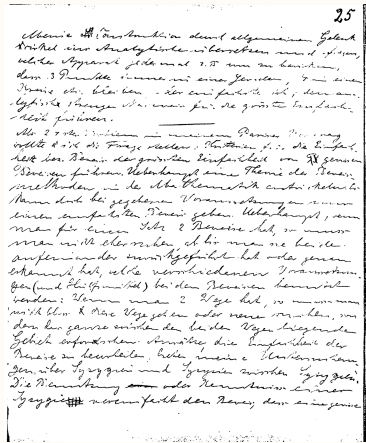 25
Meine Konstruktion durch allgemeinen Gelenk
ins Analytische übersetzen und
welcher Apparat jedesmal z.B. um zu bewirken,
dass 3 Punkte immer in einer Geraden, 4 in einem
Kreise etc. bleiben - der einfachste ist; dem ana-
lytische strenge für die grösste Einfach-
heit führen.
Als 24stes Problem in meinem Pariser Vortrag
wollte ich die Frage stellen: Kriterien für die Einfach-
heit bez. Beweis der grössten Einfachheit von gewissen
Beweisen führen. Ueberhaupt eine Theorie der Beweis-
methoden in der Mathematik entwickeln. Es
kann doch bei gegebenen Voraussetzungen nur
einen einfachsten Beweis geben. Ueberhaupt, wenn
man für einen Satz 2 Beweise hat, so muss
man nicht eher ruhen, als bis man sie beide
aufeinander zurückgeführt hat oder genau
erkannt hat, welche verschiedenen Voraussetzun-
gen (und Hilfsmittel) bei den Beweisen benutzt
werden: Wenn man 2 Wege hat, so muss man
nicht bloss diese Wege gehen oder neue suchen, son-
dern das ganze zwischen den beiden Wegen liegende
Gebiet erforschen. Ansätze, die Einfachheit der
Beweise zu beurteilen, bieten meine Untersuchun-
gen über Syzygien und Syzygien zwischen Syzygien.
Die Benutzung oder Kenntnis einer
Syzygie vereinfacht den Beweis, dass eine gewisse